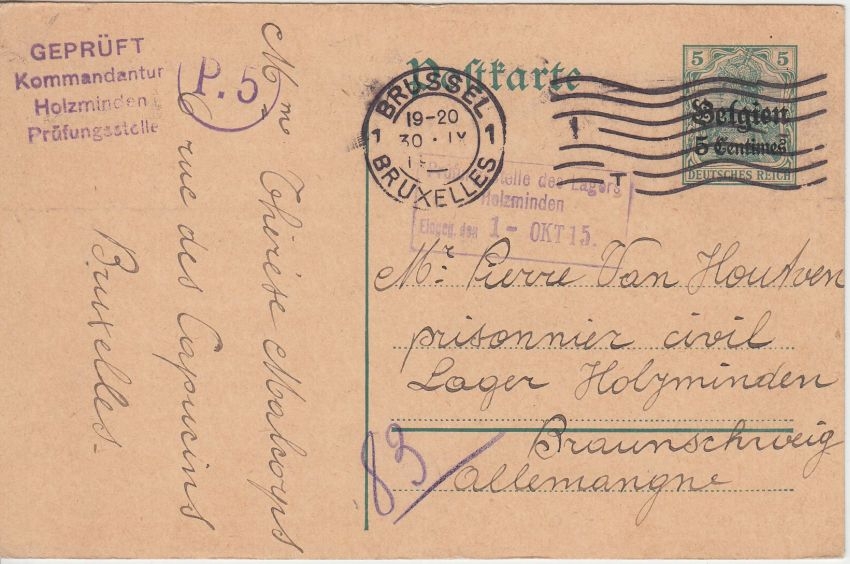 GEPRÜFT
Kommandantur
Holzminden
Prüfungsstelle
P. 5
Postkarte
BRUSSEL
19-20
30 · IX
1 1
BRUXELLES
5 5
Belgien
5 Centimes
DEUTSCHES REICH
T
stelle des Lagers
Holzminden
Eingeg. den 1 - OKT 15.
Mme Thérèse Malcorps
6 rue des Capucins
Bruxelles.
Mr. Pierre Van Houtven
prisonnier civil
Lager Holzminden
Braunschweig
Allemangne
83